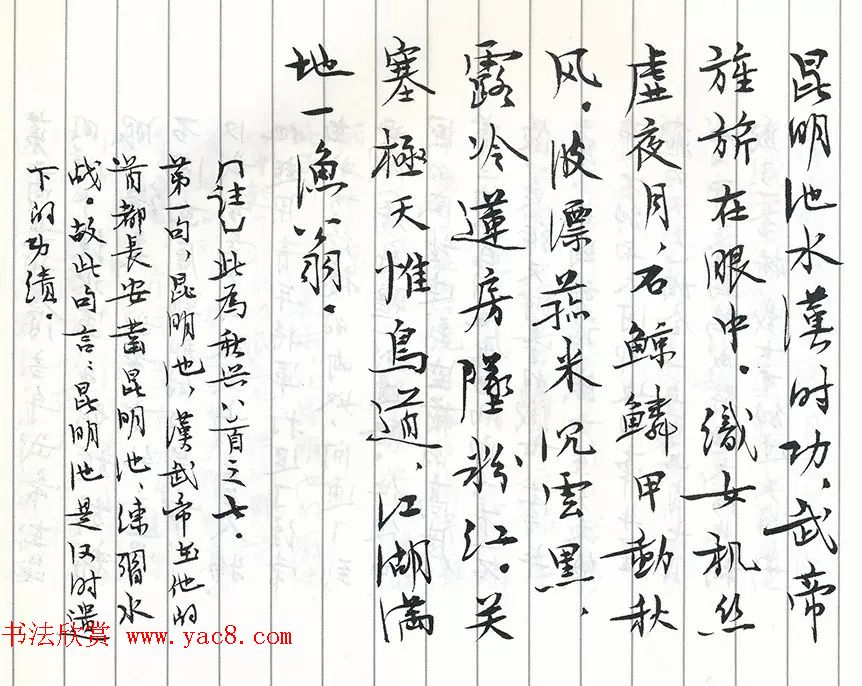 昆明池水漢时功，武帝
旌旂在眼中。織女机丝
虚夜月，石鲸鳞甲動秋
风。波漂菰米沉雲黑，
露冷蓮房墜粉江。关
塞極天惟鸟道，江湖满
地一漁翁。
［註］此為秋兴八首之七。
第一句，昆明池，漢武帝在他的
首都長安凿昆明池，练習水
战。故此句言：昆明池是汉时遗
下的功绩。
书法欣赏 www.yac8.com